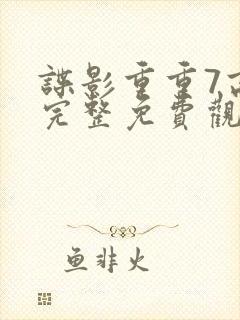 諜影重重7高
完整免費觀
鱼非火